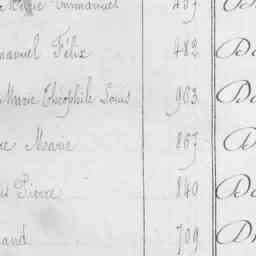 Marie Emmanuel 457
manuel Félix 482
Marie Théophile Louis 963
re Marie 867
is Pierre 840
and 709